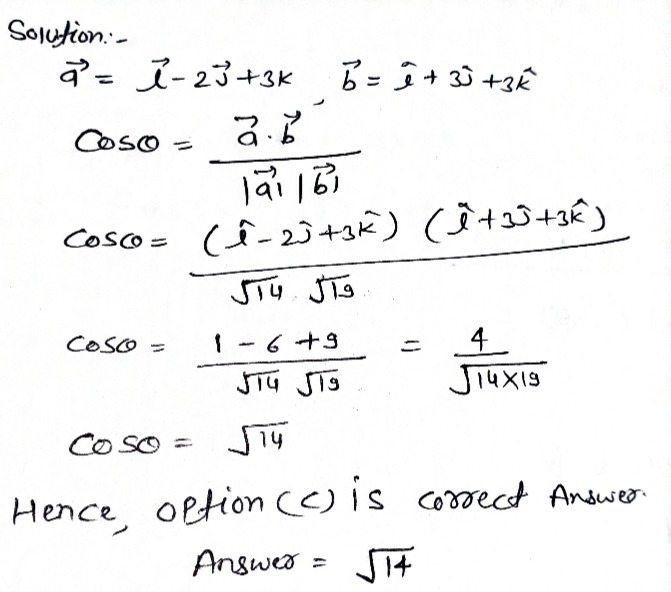 Solution:-
a⃗ = i⃗ - 2j⃗ + 3k , b⃗ = î + 3ĵ + 3k̂
Cosθ = a⃗.b⃗ / |a⃗| |b⃗|
Cosθ = (î - 2ĵ + 3k̂) (î + 3ĵ + 3k̂) / √14 √19
Cosθ = 1 - 6 + 9 / √14 √19 = 4 / √14×19
Cosθ = √14
Hence, option (c) is correct Answer.
Answer = √14